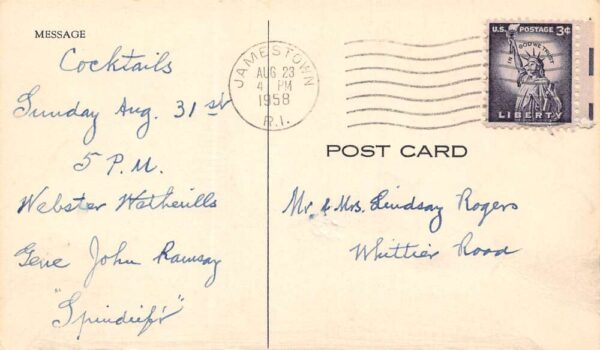 MESSAGE
Cocktails
Sunday Aug. 31st
5 P.M.
Webster Wetherills
Gene John Ramsay
"Spindrift"
JAMESTOWN
AUG 23
4 PM
1958
R.I.
U.S. POSTAGE 3¢
IN GOD WE TRUST
LIBERTY
POST CARD
Mr. & Mrs. Lindsay Rogers
Whittier Road